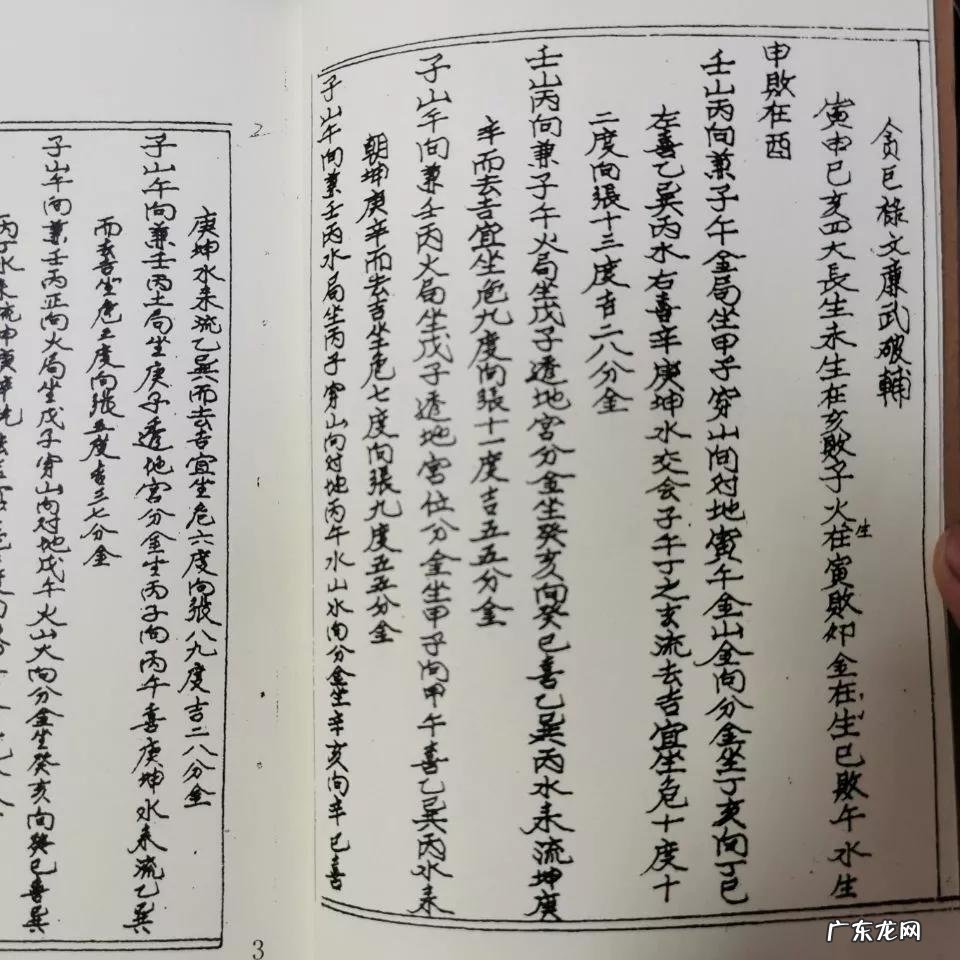 貪巨祿文廉武破輔
寅申巳亥四大長生未生在亥敗子火在寅敗卯金在生巳敗午水生
生
申敗在酉
壬山丙向兼子午金局坐甲子穿山向对地寅午金山金向分金坐丁亥向丁巳
左喜乙巽丙水右喜辛庚坤水交会子午丁之亥流去吉宜坐危十度十
二度向張十三度吉二八分金
壬山丙向兼子午火局坐戊子透地宮分金坐癸亥向癸巳喜乙巽丙水来流坤庚
辛而去吉宜坐危九度向張十一度吉五五分金
子山午向兼壬丙火局坐戊子透地宮位分金坐甲子向甲午喜乙巽丙水来
朝坤庚辛而去吉坐危七度向張九度五五分金
子山午向兼壬丙水局坐丙子穿山向对地丙午水山水向分金坐辛亥向辛巳喜
2
庚坤水来流乙巽而去吉宜坐危六度向張八九度吉二八分金
子山午向兼壬丙土局坐庚子透地宮分金坐丙子向丙午喜庚坤水来流乙巽
而去吉坐危五度向張五度吉三七分金
子山午向兼壬丙正向火局坐戊子穿山向对地戊午火山火向分金坐癸亥向癸巳喜巽
丙丁水来流申庚辛
3
广东龙网